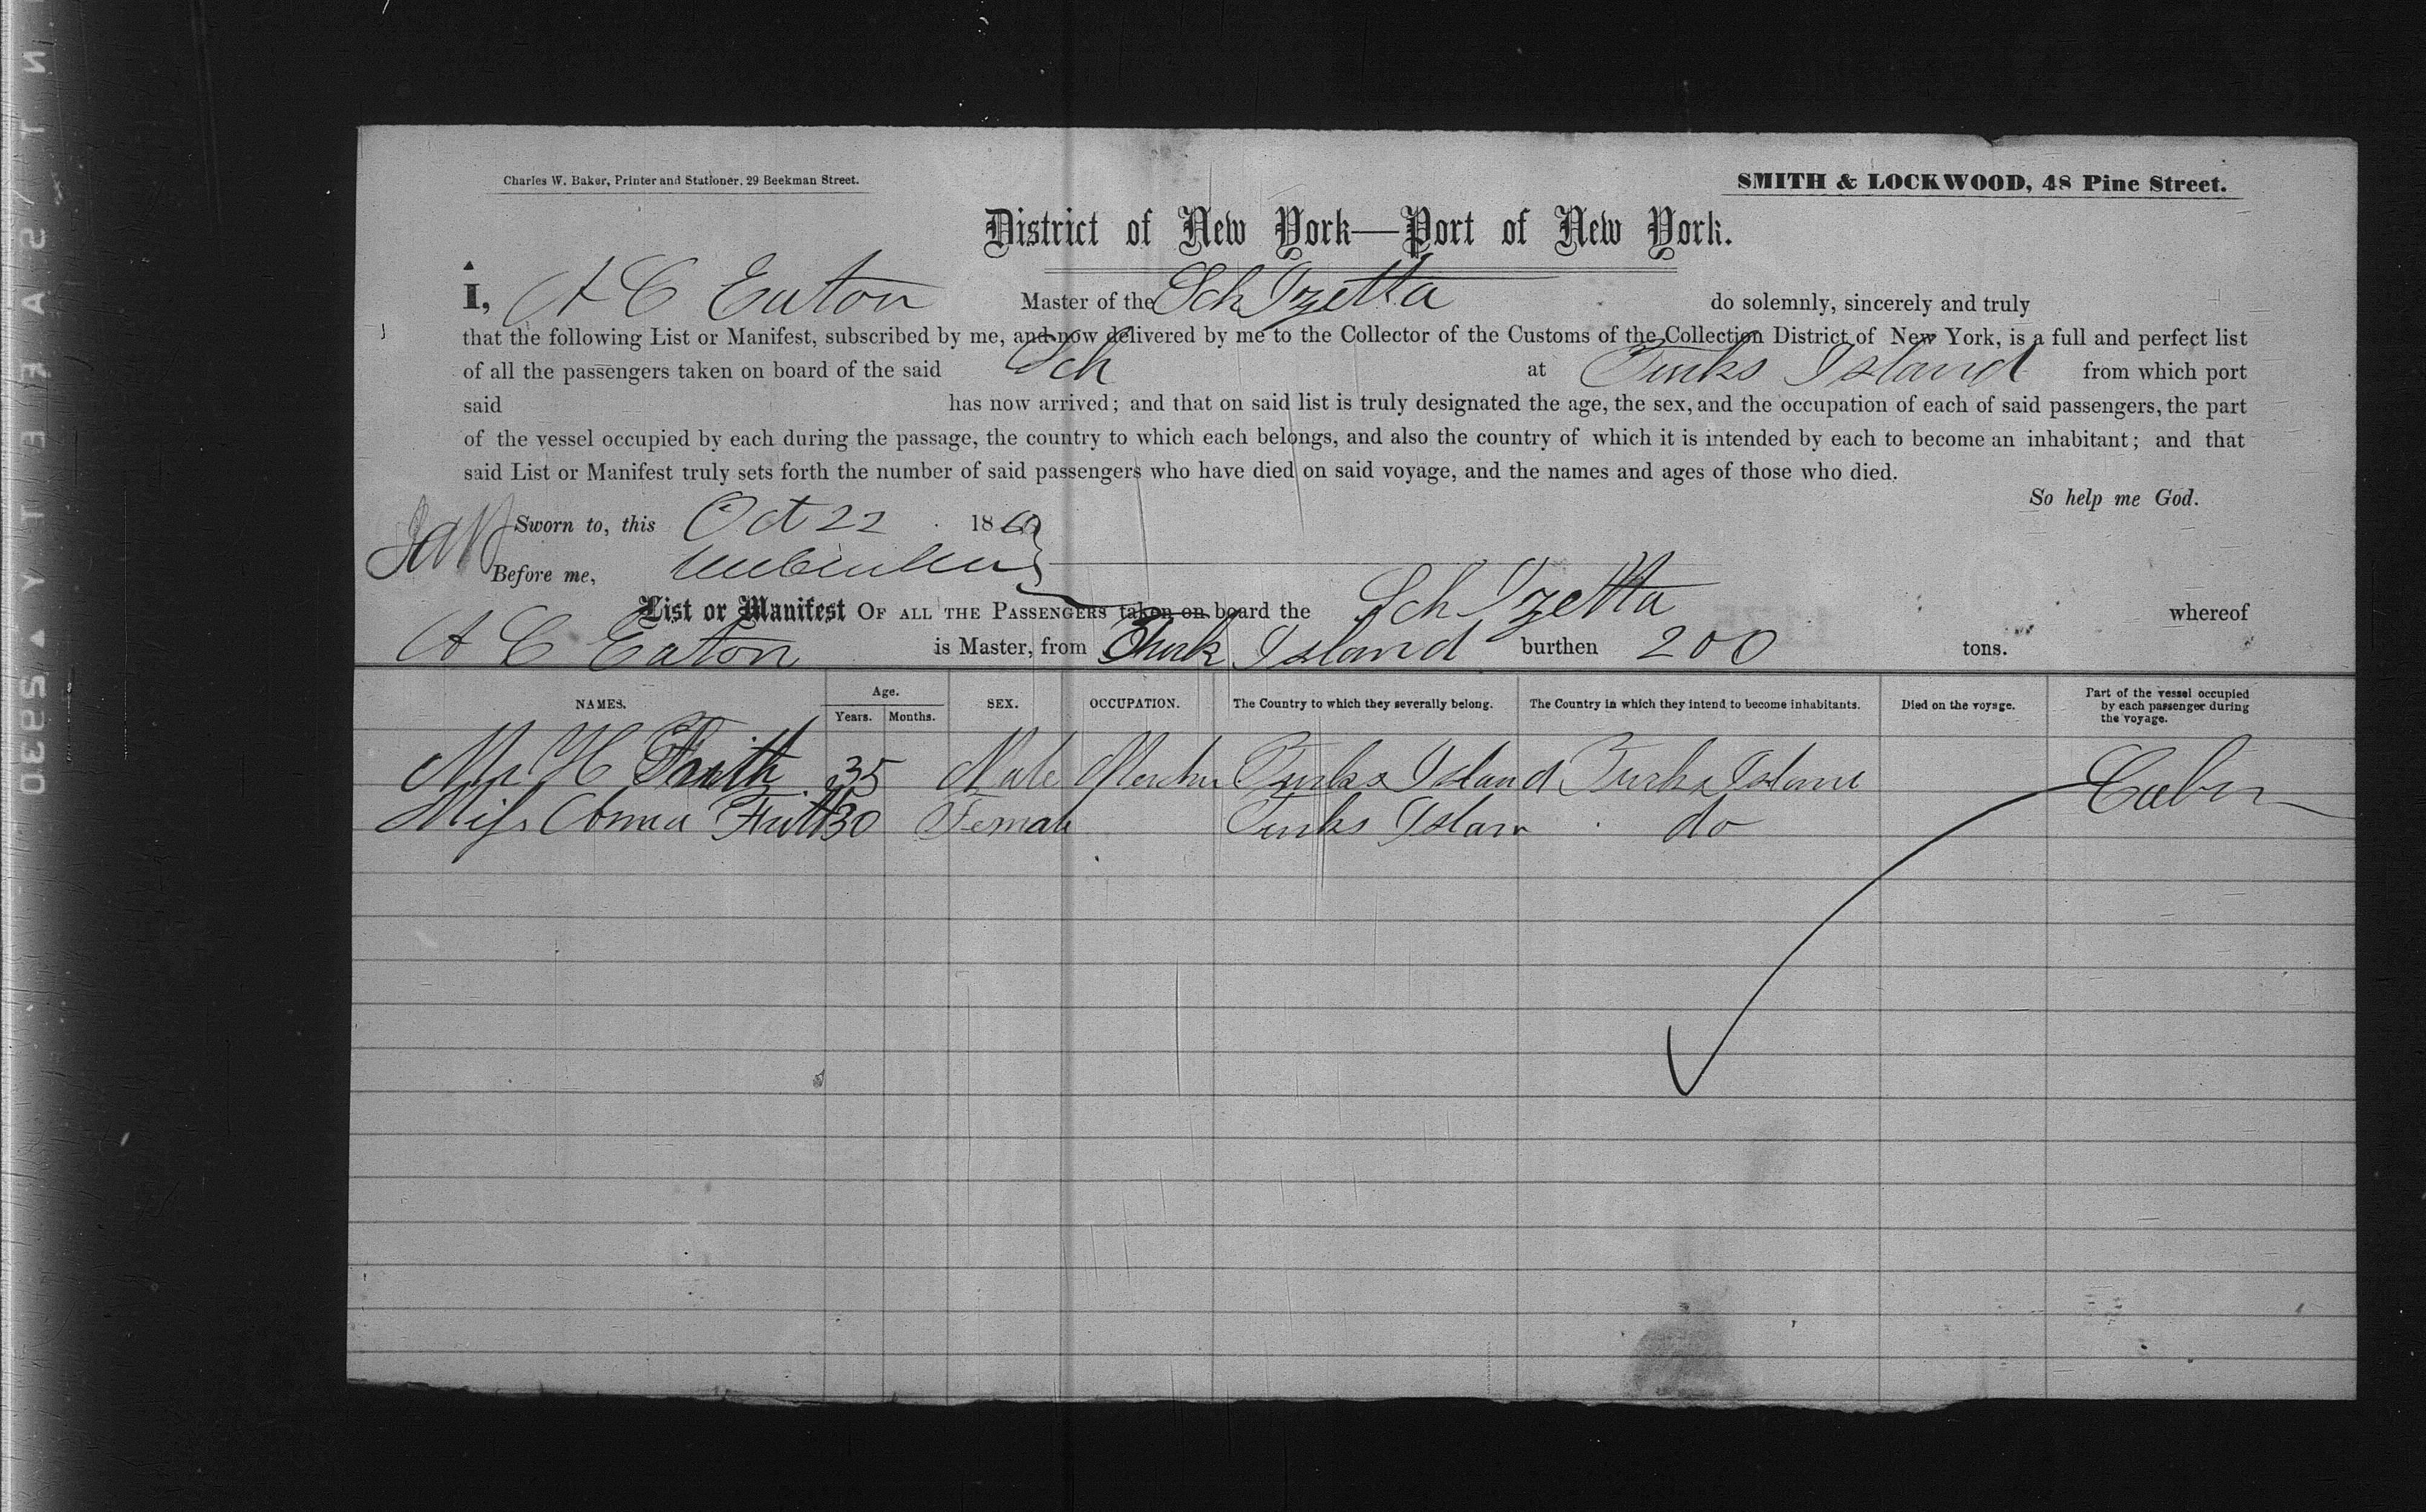 Charles W. Baker, Printer and Stationer, 29 Beekman Street.
SMITH & LOCKWOOD, 48 Pine Street.
District of New York—Port of New York.
I, A C Eaton Master of the Sch Izetta do solemnly, sincerely and truly
that the following List or Manifest, subscribed by me, and now delivered by me to the Collector of the Customs of the Collection District of New York, is a full and perfect list
of all the passengers taken on board of the said Sch at Turks Island from which port
said has now arrived; and that on said list is truly designated the age, the sex, and the occupation of each of said passengers, the part
of the vessel occupied by each during the passage, the country to which each belongs, and also the country of which it is intended by each to become an inhabitant; and that
said List or Manifest truly sets forth the number of said passengers who have died on said voyage, and the names and ages of those who died.
So help me God.
Sworn to, this Oct 22 186
Before me,
List or Manifest OF ALL THE PASSENGERS taken on board the Sch Izetta whereof
A C Eaton is Master, from Turk Island burthen 200 tons.
NAMES. Age. Years. Months. SEX. OCCUPATION. The Country to which they severally belong. The Country in which they intend to become inhabitants. Died on the voyage. Part of the vessel occupied by each passenger during the voyage.
Mr H Frith 35 Male Turks Island Turks Island
Miss Anna Frith 30 Female Turks Islan do